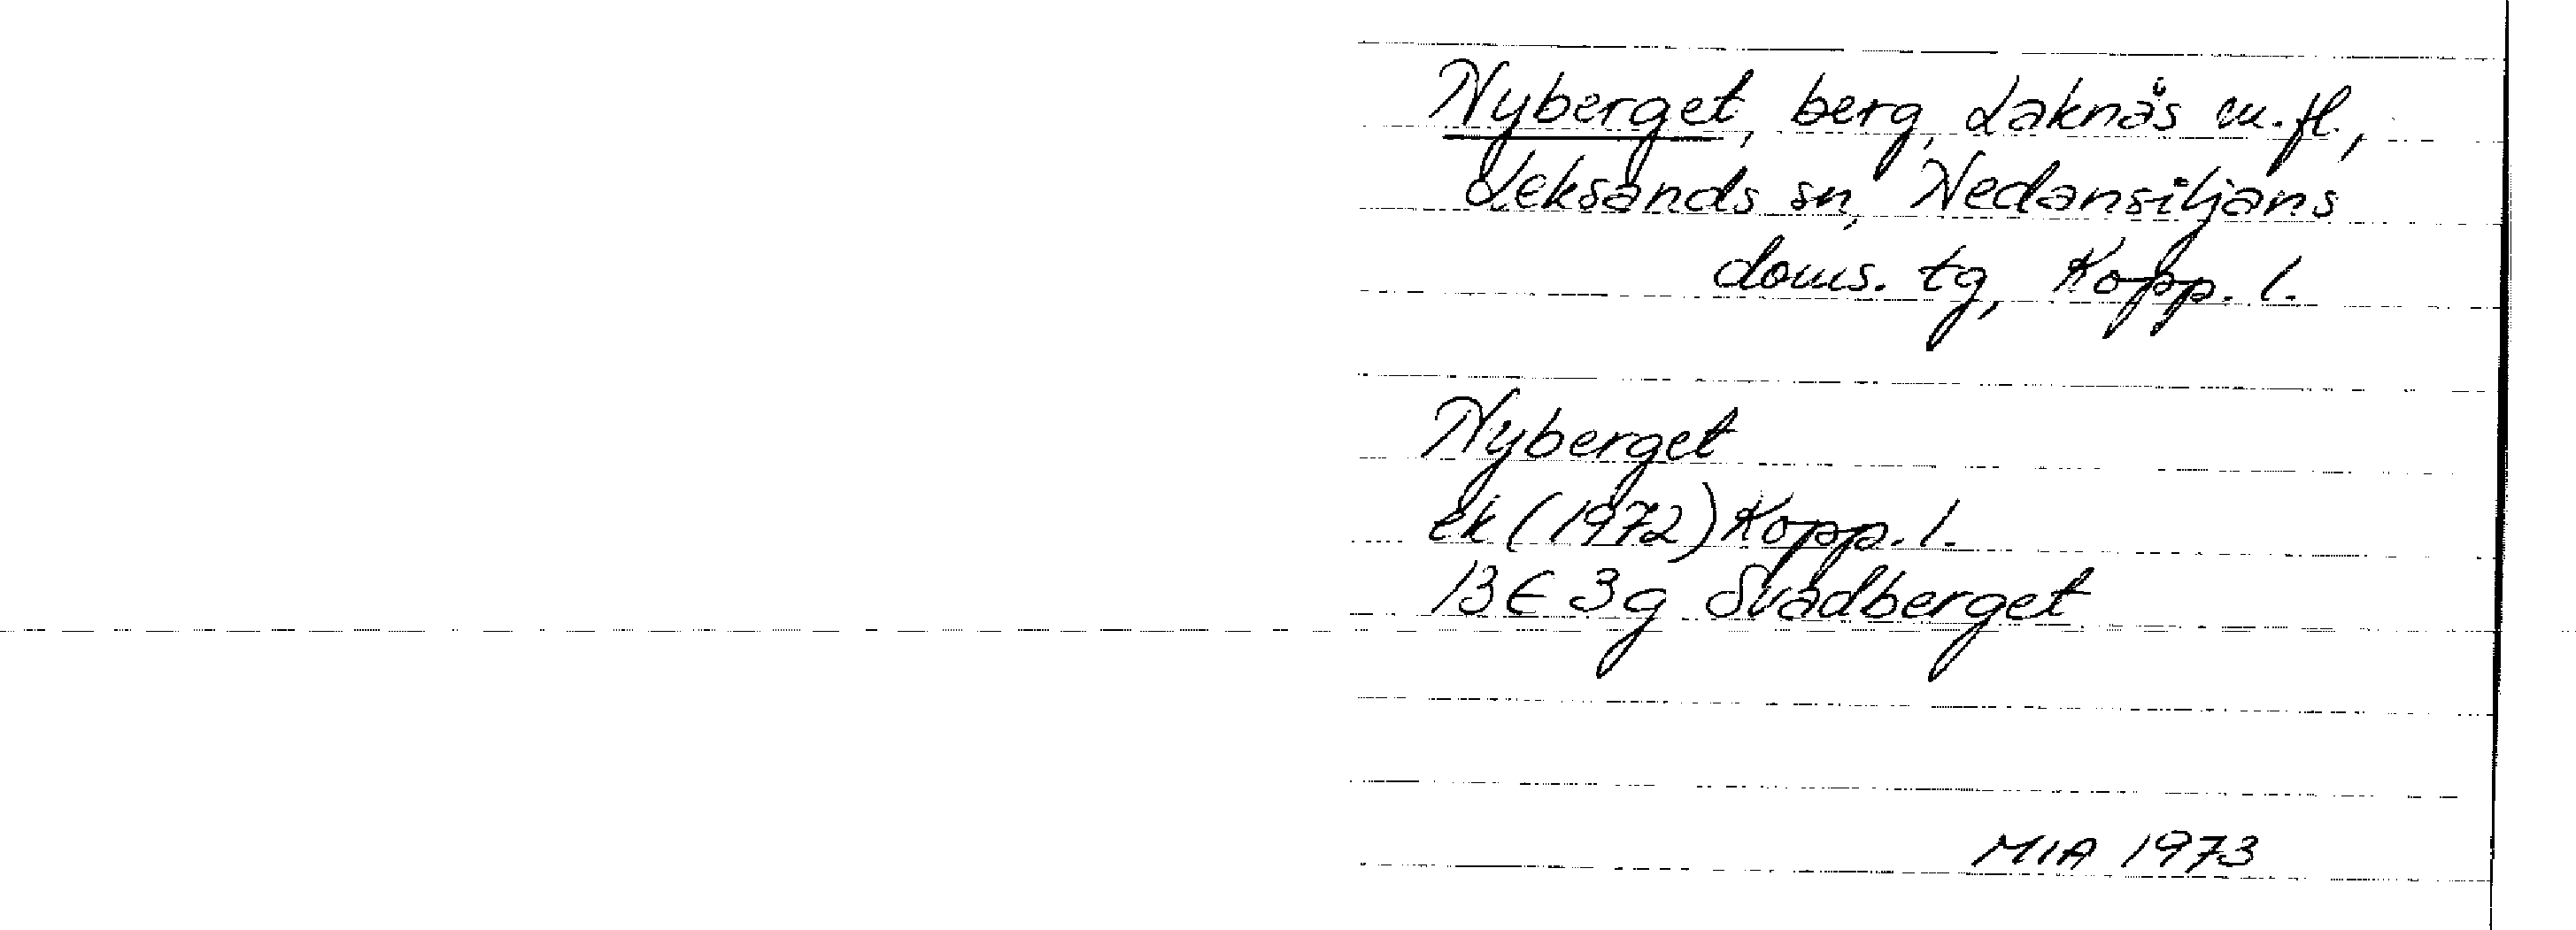 Nyberget, berg, Laknäs m.fl.,
Leksands sn, Nedansiljans
doms. tg, Kopp. l.
Nyberget
ek (1972) Kopp. l.
13E 3g Svadberget
MIA 1973